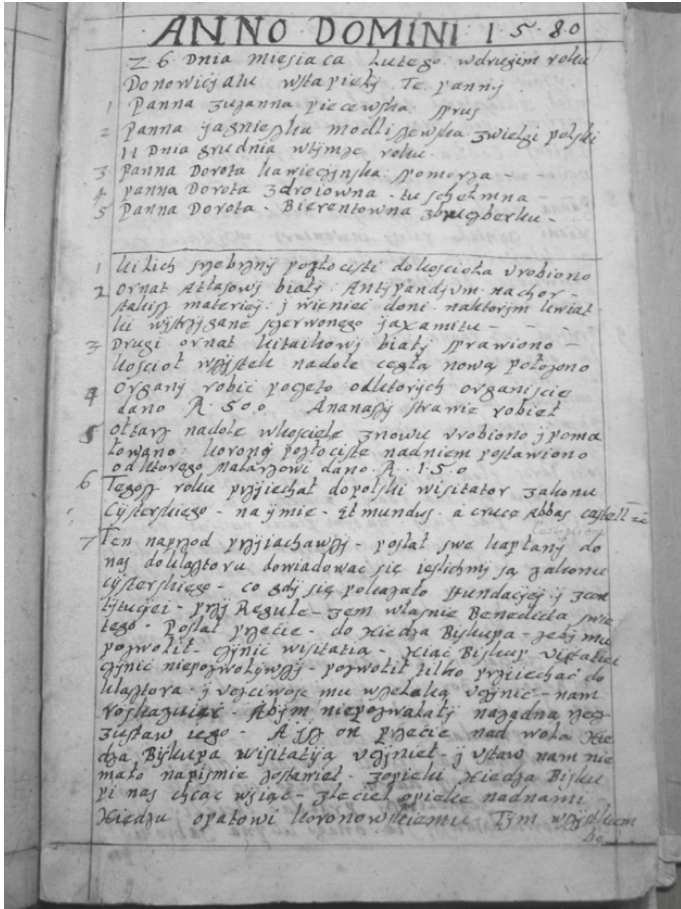 ANNO DOMINI 1580
26 Dnia miesiąca Lutego wdrugiem roku
Donowicjatu wstąpiełÿ Te pannÿ
1 Panna zuzanna piecewska sprus
2 Panna jagnieszka modliszewska zwielgi polski
11 Dnia grudnia wtÿmze roku
3 Panna Dorota kawieczÿnska spomorza
4 panna Dorota zdroiowna tuschełmna
5 Panna Dorota Bierentowna
1 kilich srzebrznÿ pozłocistÿ dokoscioła vrobiono
2 ornat Atłasowÿ białÿ Antÿpandÿum nachor
skiesz materiej j wieniec doni naktorÿm kwiat
ki wistrzÿgane sczerwonego jaxamitu
3 Drugi ornat kitaikowÿ białÿ sprawiono
kosciół wszÿstek nadole cegłą nową położono
4 Organÿ robic poczęto odktorÿch organiscie
dano R. 500 Ananaszÿ strawie robieł
5 ołtarz nadole wkosciele znowu vrobiono j poma
łowano koronę pozłociste nadniem postawiono
odktorego malarzowi dano R. 150
6 Tegosz roku przÿiechał dopolski wisitator zakonu
Cÿsterskiego na ÿmie Etmundus a cruce Abbas castell
7 Ten naprzod przÿiachawszÿ posłał swe kapłanÿ do
nas doklaztoru dowiadować się iesliczmÿ są zakonu
cÿsterskiego co gdÿ się pokazało sfundacÿeÿ ÿ zcon
stÿtucÿiei przÿ Regule zem własnie Benedicta swię
tego Posłał przecie do xiedza Biskupa zebÿ mu
pozwolił czÿnić wisitatią xiąć Biskup visitatiei
czÿnić niepozwolÿwszÿ pozwolił tilko przÿiechać do
klaztora ÿ vczciwosc mu wszelaką vczÿnic nam
roskazuiąc Abÿm niepozwalałÿ nazadną rzecz
zustaw iego A isz on przecie nad wolą xie
dza Biskupa wisitatÿą vczÿnieł ÿ vstaw nam nie
mało napismie zostawieł zopieki xiedza Bisku
pi nas chcąc wziąć zleciel opiekę nadnami
xiedzu opatowi koronowskiemu Tÿm wszÿstkiem
bo